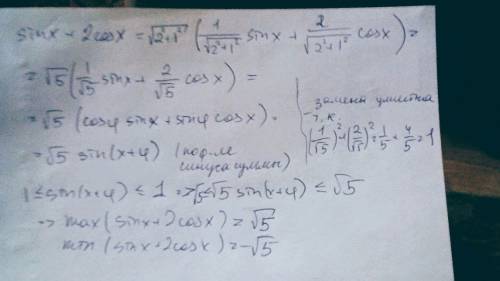 sinx + 2cosx = √(2²+1²) (1/√(2²+1²) sinx + 2/√(2²+1²) cosx) =
= √5 (1/√5 sinx + 2/√5 cosx) =
= √5 (cosφ sinx + sinφ cosx) =
= √5 sin(x+φ) (
синуса суммы)
замена уместна
т.к.
(1/√5)² + (2/√5)² = 1/5 + 4/5 = 1
1 ≤ sin(x+φ) ≤ 1 => -√5 ≤ √5 sin(x+φ) ≤ √5
=> max(sinx+2cosx) = √5
min(sinx+2cosx) = -√5